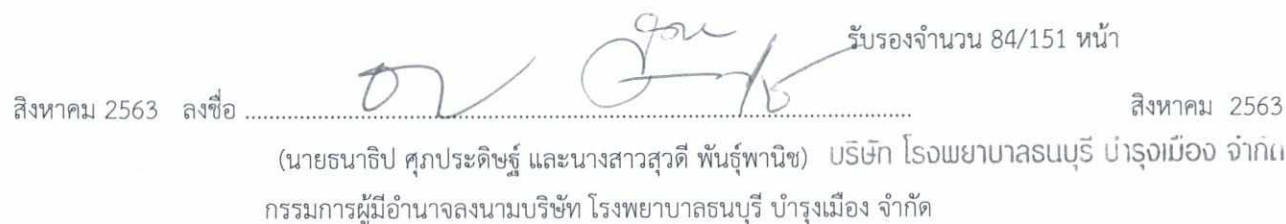 รับรองจำนวน 84/151 หน้า
สิงหาคม 2563 ลงชื่อ ........................................................................ สิงหาคม 2563
(นายธนาธิป ศุภประดิษฐ์ และนางสาวสุวดี พันธุ์พานิช) บริษัท โรงพยาบาลธนบุรี บำรุงเมือง จำกัด
กรรมการผู้มีอำนาจลงนามบริษัท โรงพยาบาลธนบุรี บำรุงเมือง จำกัด